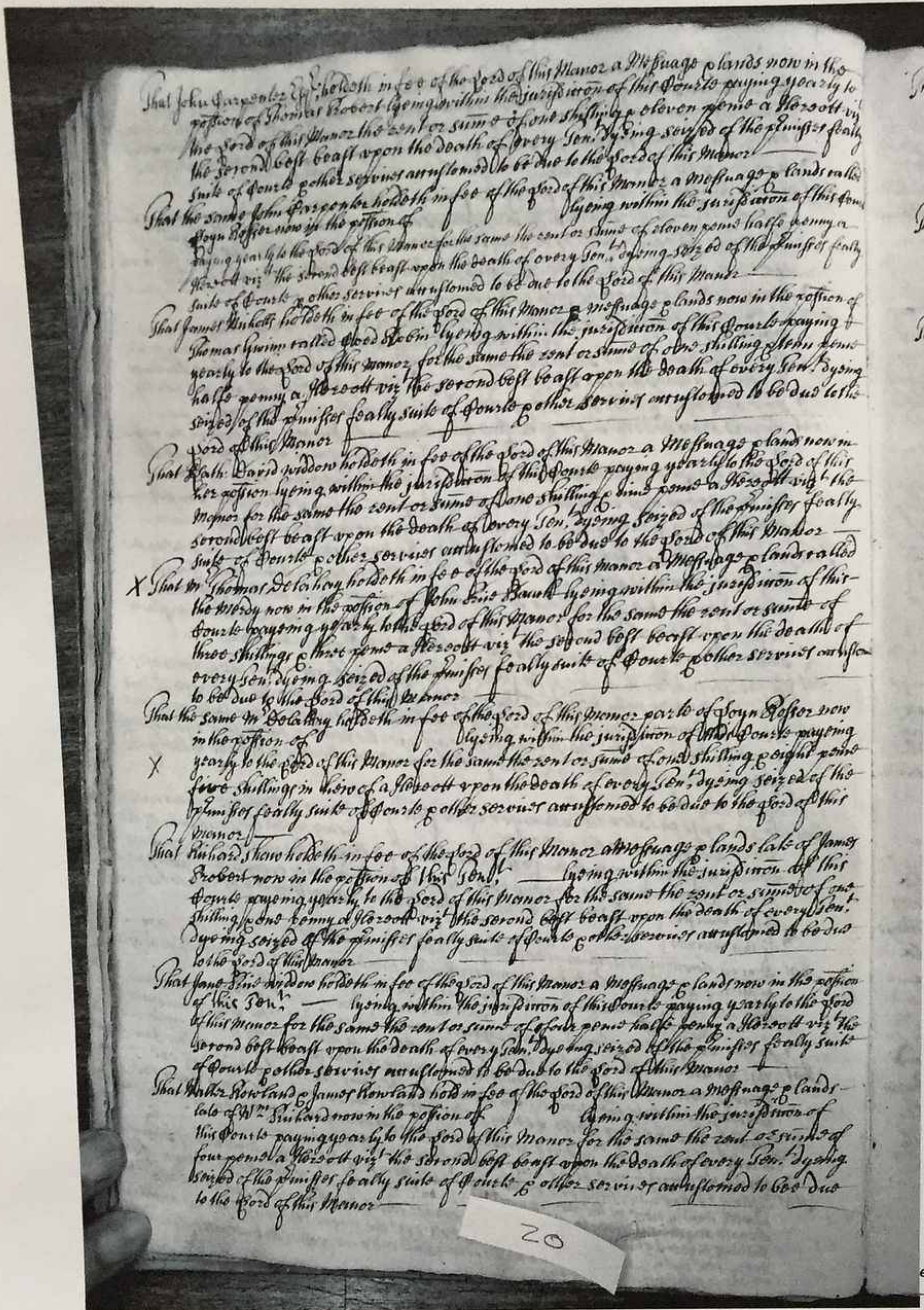 That John Carpenter Esqr. holdeth in fee of the Lord of this Manor a Messuage & lands now in the
possion of Thomas Probert lyeing within the jurisdiccon of this Courte paying yearly to
the Lord of this Manor the rent or sume of one shilling & eleven pence a Hereott vizt
the second best beast upon the death of every Tent. dyeing seized of the pmisses fealty
suite of Courte & other services accustomed to be due to the Lord of this Manor
That the same John Carpenter holdeth in fee of the Lord of this Manor a Messuage & lands called
Coyn Rosser now in the possion of lyeing within the jurisdiccon of this Courte
paying yearly to the Lord of this Manor for the same the rent or sume of eleven pence halfe penny a
Hereott vizt the second best beast upon the death of every Tent. dyeing seized of the pmisses fealty
suite of Courte & other services accustomed to be due to the Lord of this Manor
That James Nicholls holdeth in fee of the Lord of this Manor a Messuage & lands now in the possion of
Thomas Gwinn called Coed Robin lyeing within the jurisdiccon of this Courte paying
yearly to the Lord of this Manor for the same the rent or sume of one shilling & pence
halfe penny a Hereott vizt the second best beast upon the death of every Tent. dyeing
seized of the pmisses fealty suite of Courte & other services accustomed to be due to the
Lord of this Manor
That Kath: David widdow holdeth in fee of the Lord of this Manor a Messuage & lands now in
her possion lyeing within the jurisdiccon of this Courte paying yearly to the Lord of this
Manor for the same the rent or sume of one shilling & nine pence a Hereott vizt the
second best beast upon the death of every Tent. dyeing seized of the pmisses fealty
suite of Courte & other services accustomed to be due to the Lord of this Manor
X That Mr Thomas Delahay holdeth in fee of the Lord of this Manor a Messuage & lands called
the Merdy now in the possion of John Price lyeing within the jurisdiccon of this
Courte payeing yearly to the Lord of this Manor for the same the rent or sume of
three shillings & three pence a Hereott vizt the second best beast upon the death of
every Tent. dyeing seized of the pmisses fealty suite of Courte & other services accustom
to be due to the Lord of this Manor
That the same Mr Delahay holdeth in fee of the Lord of this Manor parte of Coyn Rosser now
in the possion of lyeing within the jurisdiccon of this Courte payeing
X yearly to the Lord of this Manor for the same the rent or sume of one shilling & eight pence
five shillings in view of a Hereott upon the death of every Tent. dyeing seized of the
pmisses fealty suite of Courte & other services accustomed to be due to the Lord of this
Manor
That Richard Shaw holdeth in fee of the Lord of this Manor a Messuage & lands late of James
Probert now in the possion of this Tent. lyeing within the jurisdiccon of this
Courte payeing yearly to the Lord of this Manor for the same the rent or sume of one
shilling & one penny a Hereott vizt the second best beast upon the death of every Tent.
dyeing seized of the pmisses fealty suite of Courte & other services accustomed to be due
to the Lord of this Manor
That Jane Price widdow holdeth in fee of the Lord of this Manor a Messuage & lands now in the possion
of this Tent. lyeing within the jurisdiccon of this Courte paying yearly to the Lord
of this Manor for the same the rent or sume of four pence halfe penny a Hereott vizt the
second best beast upon the death of every Tent. dyeing seized of the pmisses fealty suite
of Courte & other services accustomed to be due to the Lord of this Manor
That Walter Rowland & James Rowland hold in fee of the Lord of this Manor a Messuage & lands
late of Wm Prichard now in the possion of lyeing within the jurisdiccon of
this Courte paying yearly to the Lord of this Manor for the same the rent or sume of
four pence a Hereott vizt the second best beast upon the death of every Tent. dyeing
seized of the pmisses fealty suite of Courte & other services accustomed to bee due
to the Lord of this Manor
20